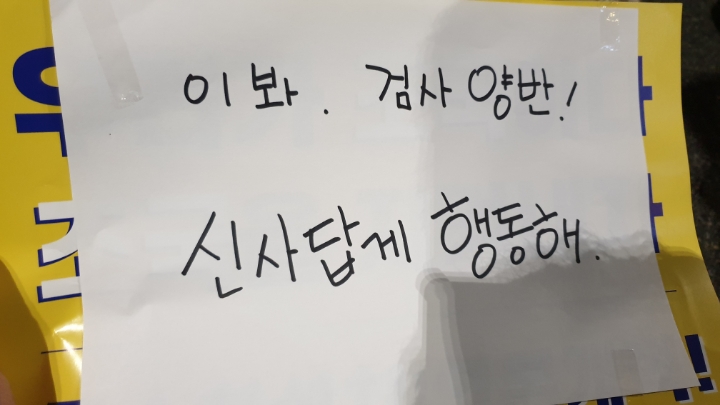 이봐. 검사 양반!
신사답게 행동해.